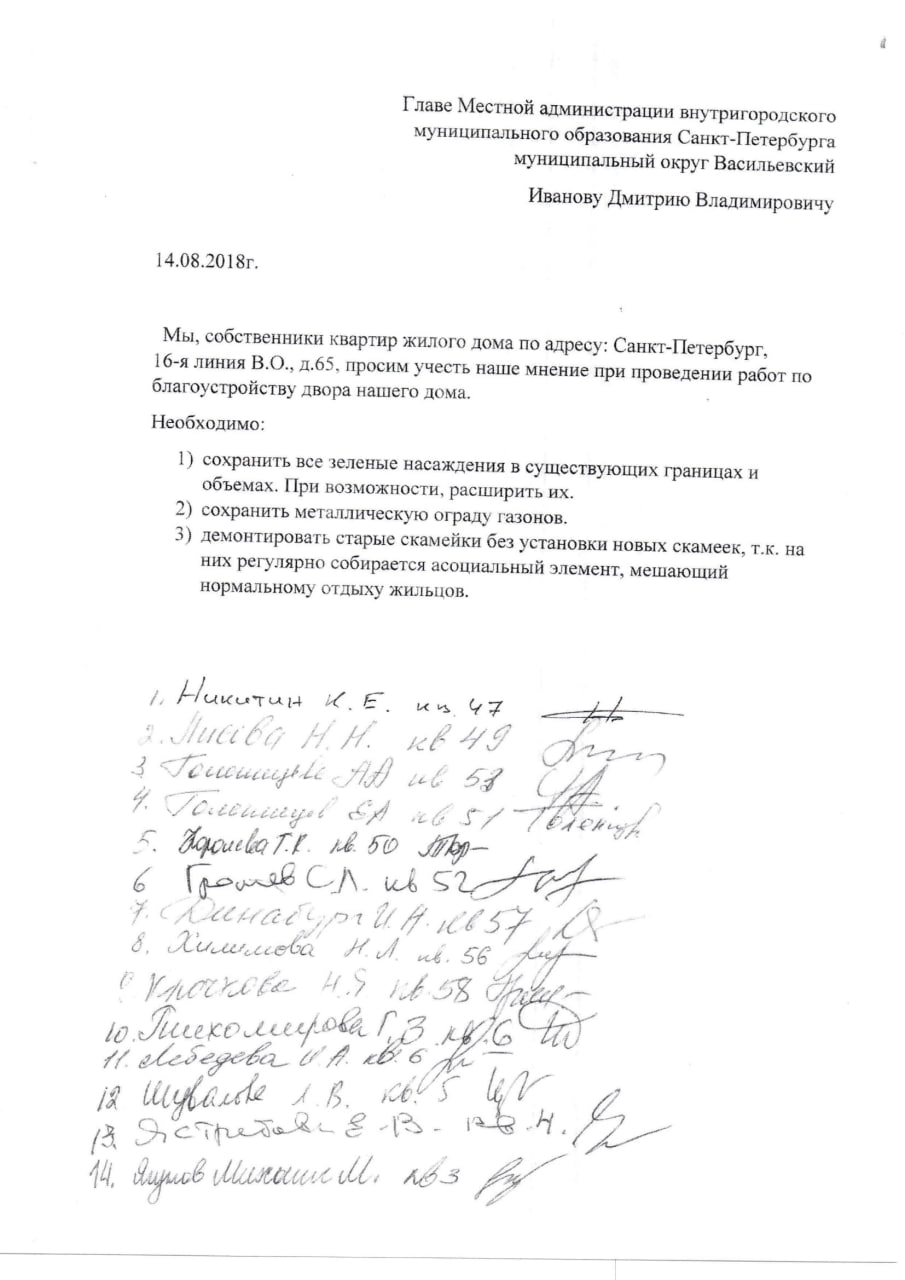 Главе Местной администрации внутригородского
муниципального образования Санкт-Петербурга
муниципальный округ Васильевский
Иванову Дмитрию Владимировичу
14.08.2018г.
Мы, собственники квартир жилого дома по адресу: Санкт-Петербург,
16-я линия В.О., д.65, просим учесть наше мнение при проведении работ по
благоустройству двора нашего дома.
Необходимо:
1) сохранить все зеленые насаждения в существующих границах и
объемах. При возможности, расширить их.
2) сохранить металлическую ограду газонов.
3) демонтировать старые скамейки без установки новых скамеек, т.к. на
них регулярно собирается асоциальный элемент, мешающий
нормальному отдыху жильцов.
1. Никитин К. Е. кв. 47
2. Н. Н. кв 49
3 АА кв 53
4. ЕА кв 51
5. Королева Т.Р. кв. 50
6 С.Л. кв 52
7. Динабург И.А. кв 57
8. Халимова Н.Л. кв. 56
9 Крючкова Н.Я кв. 58
10. Тихомирова Г.В. кв. 6
11. Лебедева И.А. кв. 6
12 Шувалова Л.В. кв. 5
13. Е.В. кв 4.
14. М. кв 3